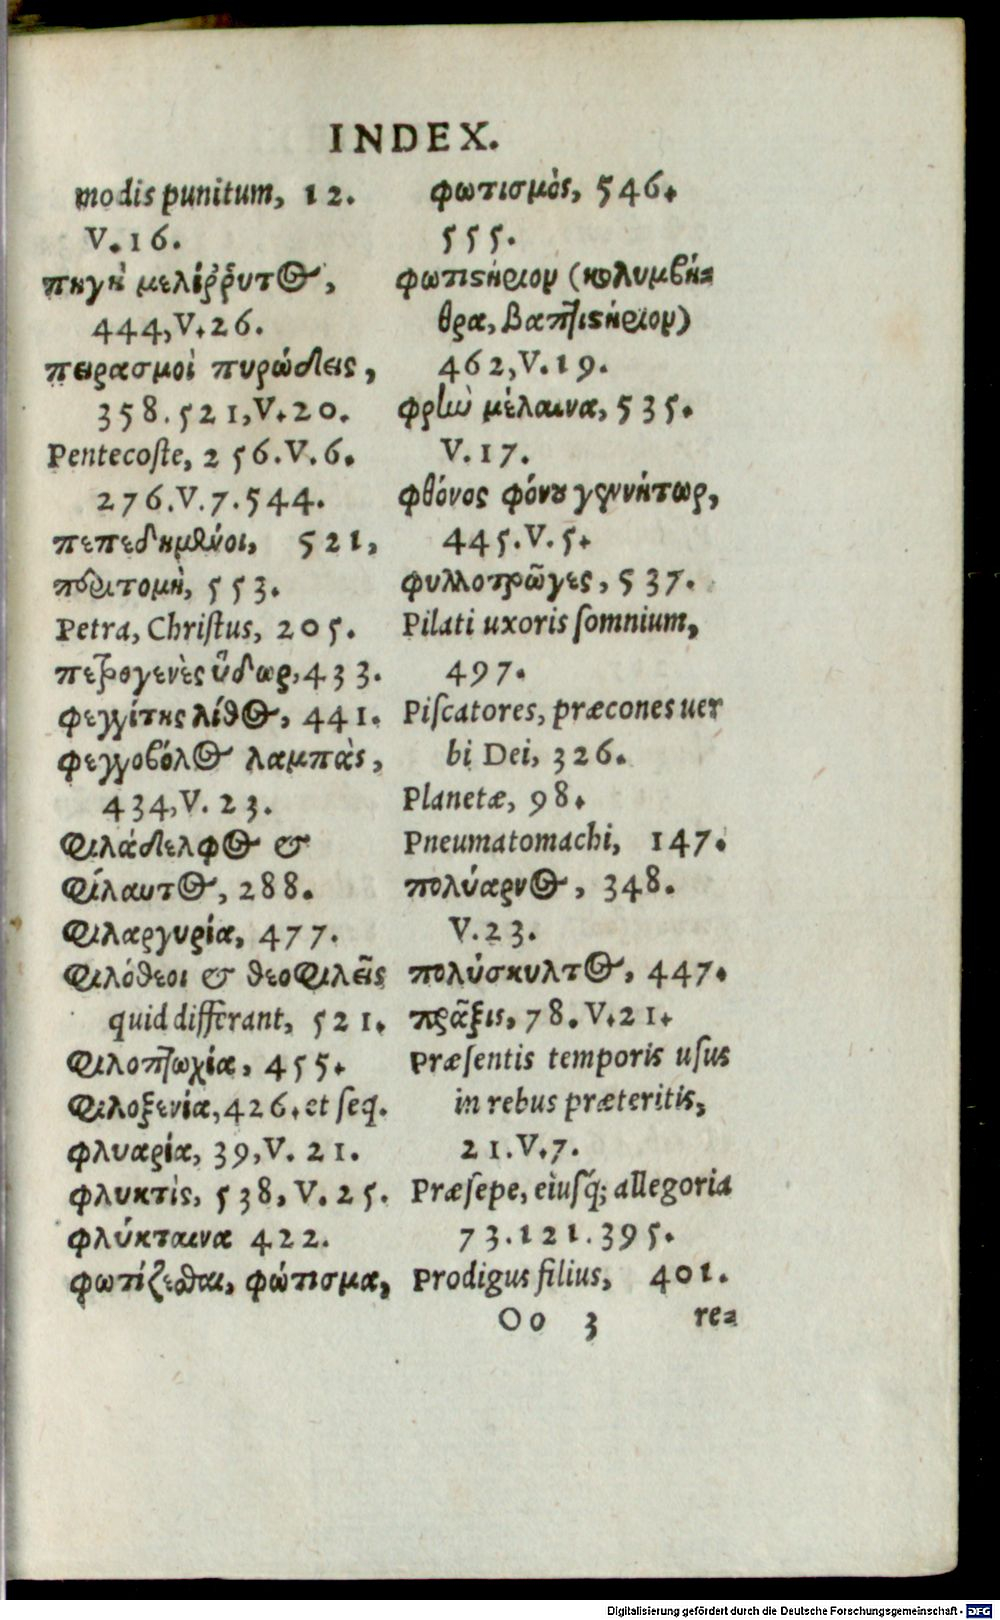 INDEX.
modis punitum, 12.
V.16.
πηγὴ μελίῤῥυτος,
444,V.26.
πειρασμοὶ πυρώδεις,
358.521,V.20.
Pentecoſte, 256.V.6.
276.V.7.544.
πεπεδημένοι, 521,
περιτομὴ, 553.
Petra, Chriſtus, 205.
πετρογενὲς ὕδωρ,433.
φεγγίτης λίθος, 441.
φεγγοβόλος λαμπὰς,
434,V.23.
Φιλάδελφος &
Φίλαυτος, 288.
Φιλαργυρία, 477.
Φιλόθεοι & θεοΦιλεῖς
quid differant, 521.
Φιλοπτωχία, 455.
Φιλοξενία,426.et ſeq.
φλυαρία, 39,V.21.
φλυκτὶς, 538,V.25.
φλύκταινα 422.
φωτίζεσθαι, φώτισμα,
φωτισμὸς, 546.
555.
φωτιστήριον (κολυμβή-
θρα, βαπτιστήριον)
462,V.19.
φρὼ μέλαινα, 535.
V.17.
φθόνος φόνου γεννήτωρ,
445.V.5.
φυλλοτρῶγες, 537.
Pilati uxoris ſomnium,
497.
Piſcatores, præcones uer
bi Dei, 326.
Planetæ, 98.
Pneumatomachi, 147.
πολύαρνος, 348.
V.23.
πολύσκυλτος, 447.
πρᾶξις, 78.V.21.
Præſentis temporis uſus
in rebus præteritis,
21.V.7.
Præſepe, eiuſq; allegoria
73.121.395.
Prodigus filius, 401.
Oo 3 re-
Digitalisierung gefördert durch die Deutsche Forschungsgemeinschaft - DFG